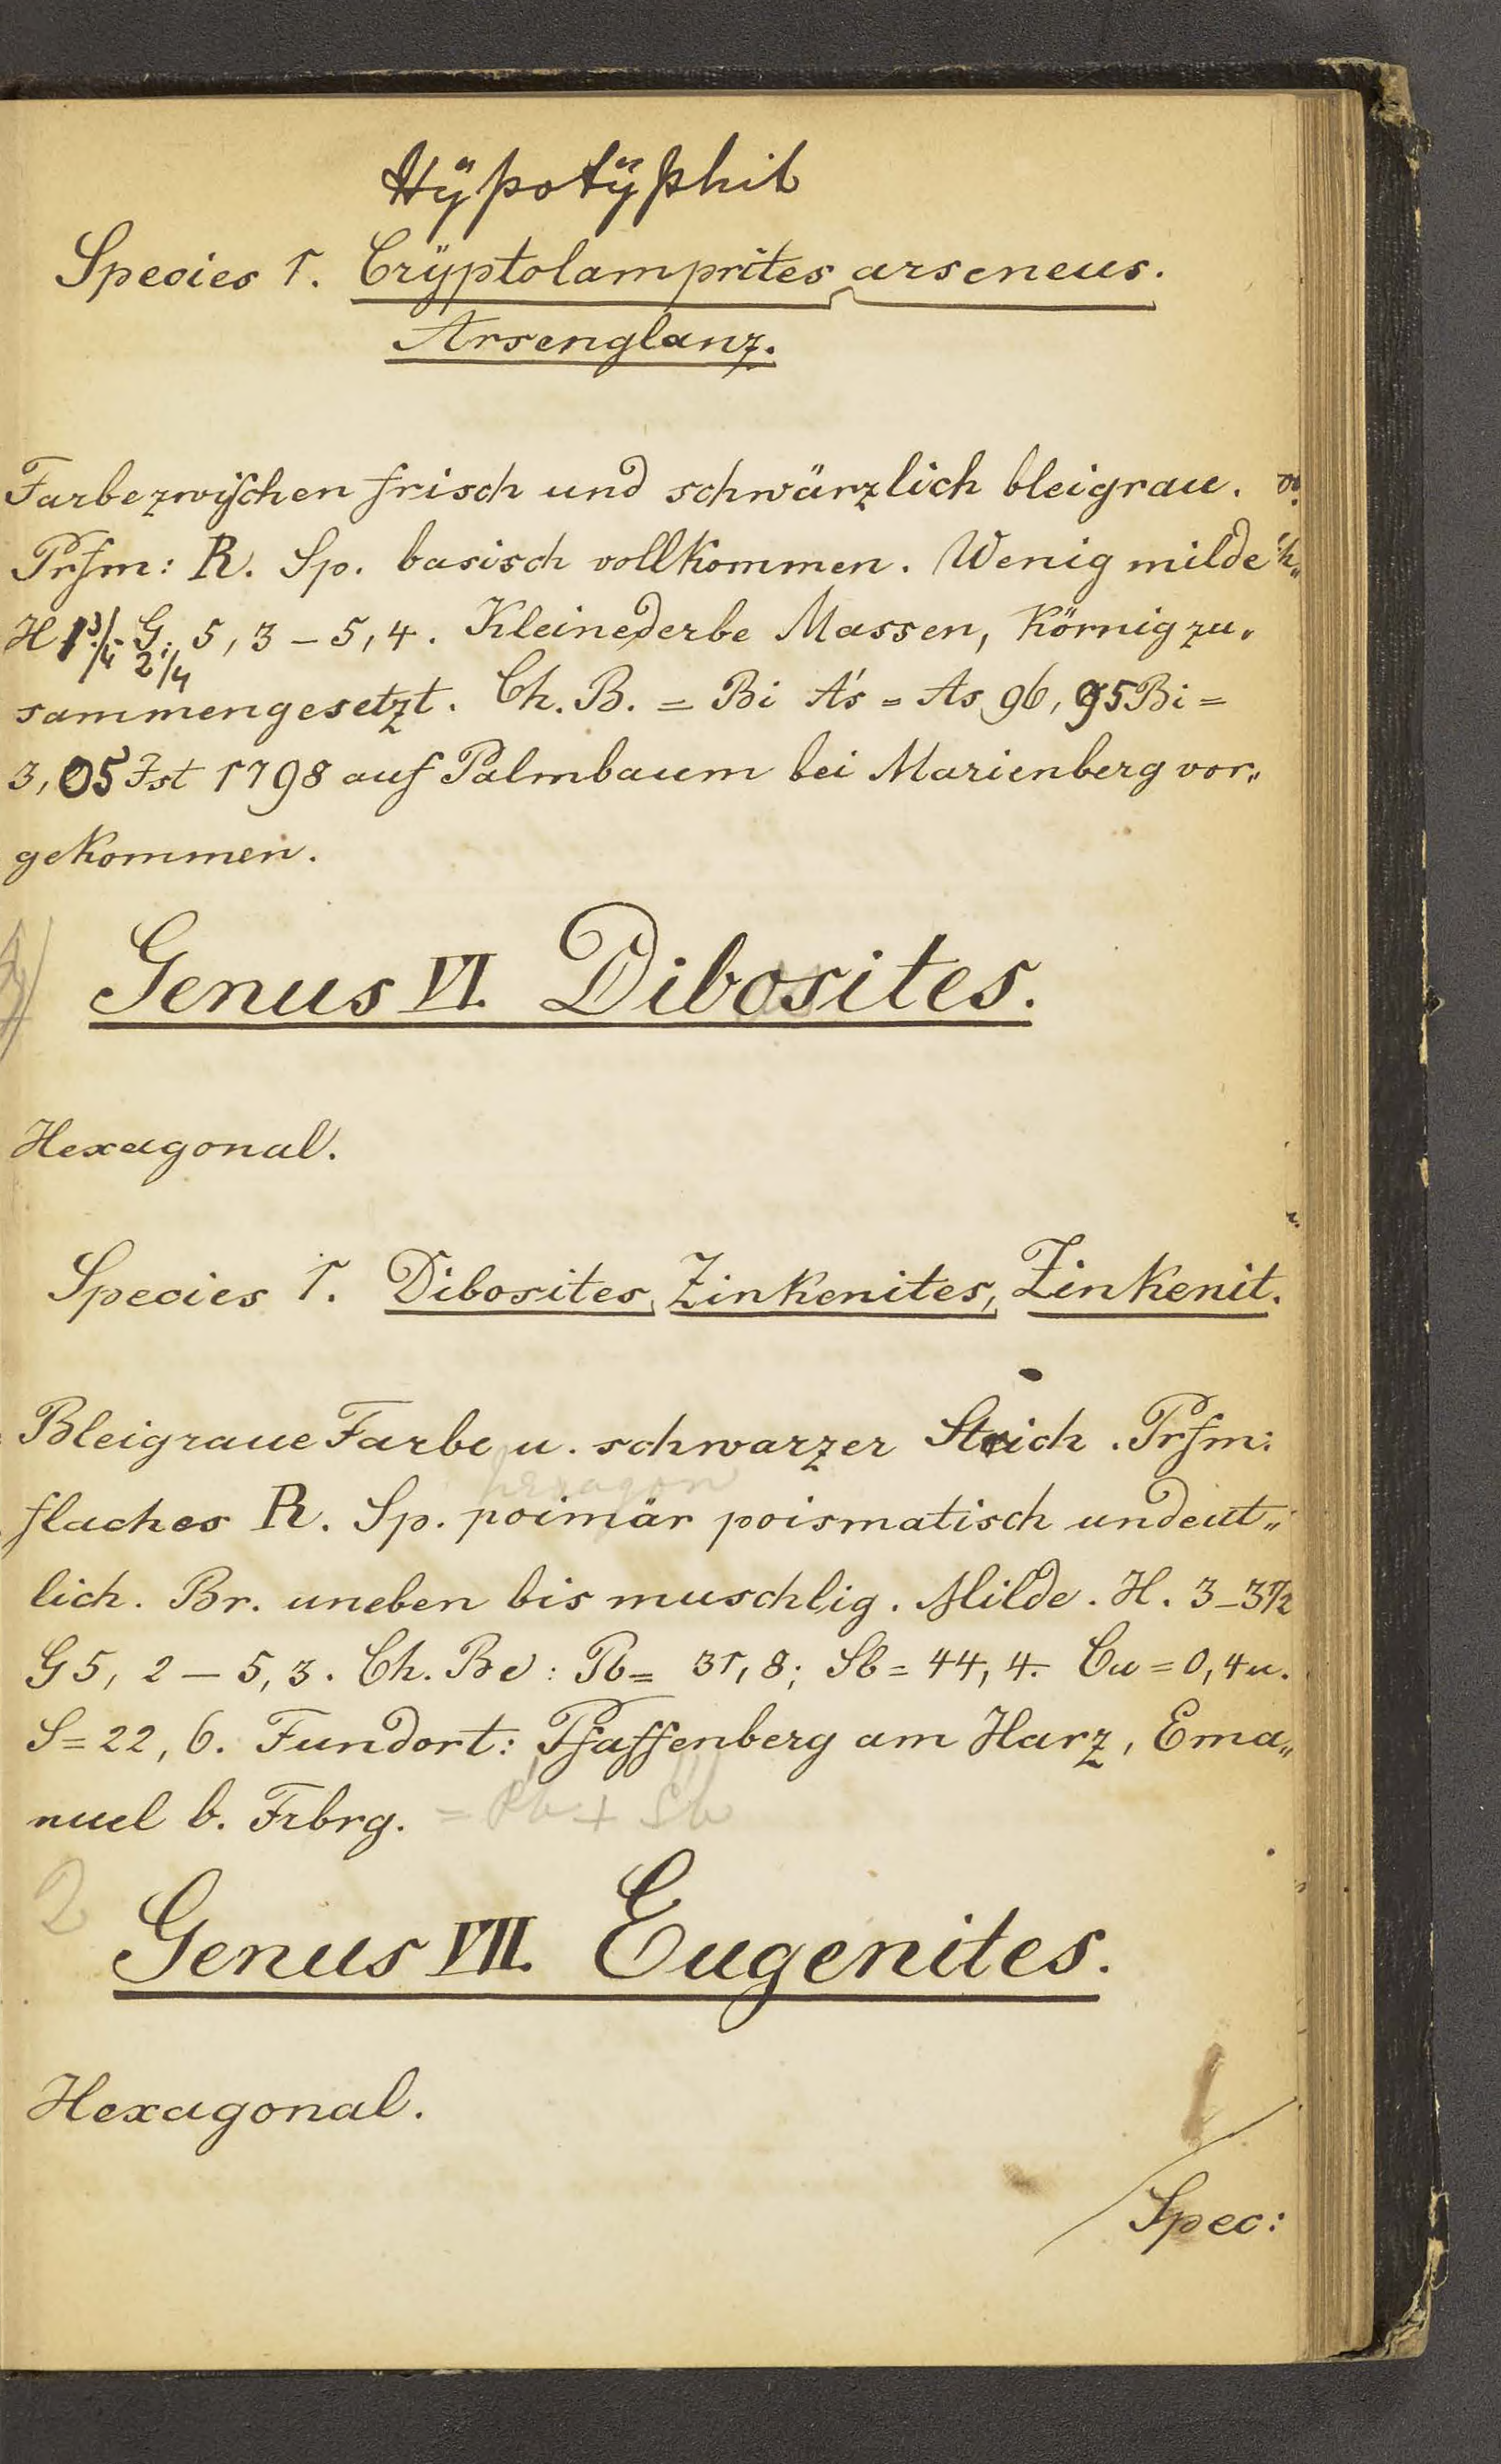 Hÿpotÿphit
Species 1. Crÿptolamprites arseneus.
Arsenglanz.
Farbe zwischen frisch und schwärzlich bleigrau.
Prfm: R. Sp. basisch vollkommen. Wenig milde
H 1 3/4 - 2 1/4 G. 5,3 – 5,4. Kleine derbe Massen, körnig zu„
sammengesetzt. Ch. B. = Bi As = As 96,95 Bi =
3,05 Ist 1798 auf Palmbaum bei Marienberg vor„
gekommen.
Genus VI. Dibosites.
Hexagonal.
Species 1. Dibosites, Zinkenites, Zinkenit.
Bleigraue Farbe u. schwarzer Strich. Prfm:
hexagon
flaches R. Sp. poimär poismatisch undeut„
lich. Br. uneben bis muschlig. Milde. H. 3–3 1/2
G 5,2 – 5,3. Ch. Be: Pb = 31,8; Sb = 44,4. Cu = 0,4 u.
S = 22,6. Fundort: Pfaffenberg am Harz, Ema„
nuel b. Frbrg. = Pb + Sb
2
Genus VII. Eugenites.
Hexagonal.
Spec: